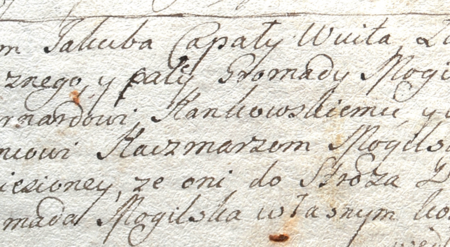 m Jakuba Capały Wuita
cznego, y całey Gromady Mogils
ernardowi Stankowskiemu y
niowi Kaczmarzom Mogilsk
iesioney, ze oni do Stroża
omada Mogilska własnym ko
wedł